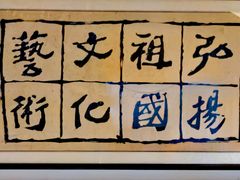 弘揚
祖國
文化
藝術